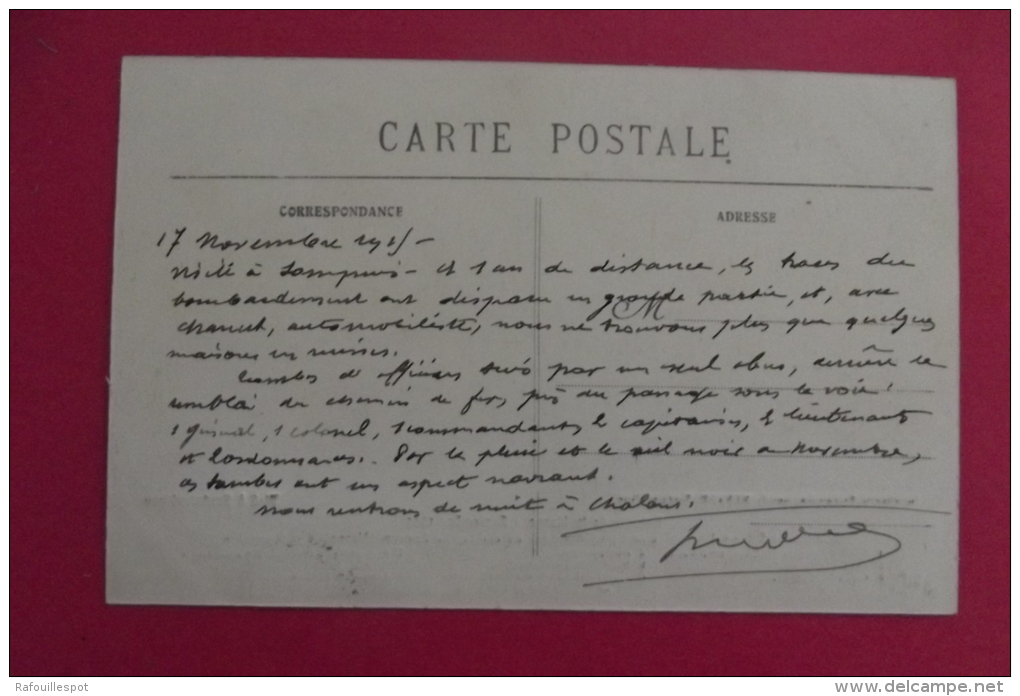 CARTE POSTALE
CORRESPONDANCE
ADRESSE
17 Novembre 1915 –
Visité à Sompuis – à 1 an de distance, les traces du
bombardement ont disparu en grande partie, et, avec
, automobiliste, nous ne trouvons plus que quelques
maisons en ruines.
Tombes d'officiers tués par un seul obus, derrière le
remblai du chemin de fer, près du passage sous la voie :
1 général, 1 colonel, 1 commandant, 2 capitaines, 2 lieutenants
et 2 ordonnances. Par la pluie et le ciel noir de novembre,
ces tombes ont un aspect navrant.
Nous rentrons de nuit à Chalons.
Rafouillespot
www.delcampe.net